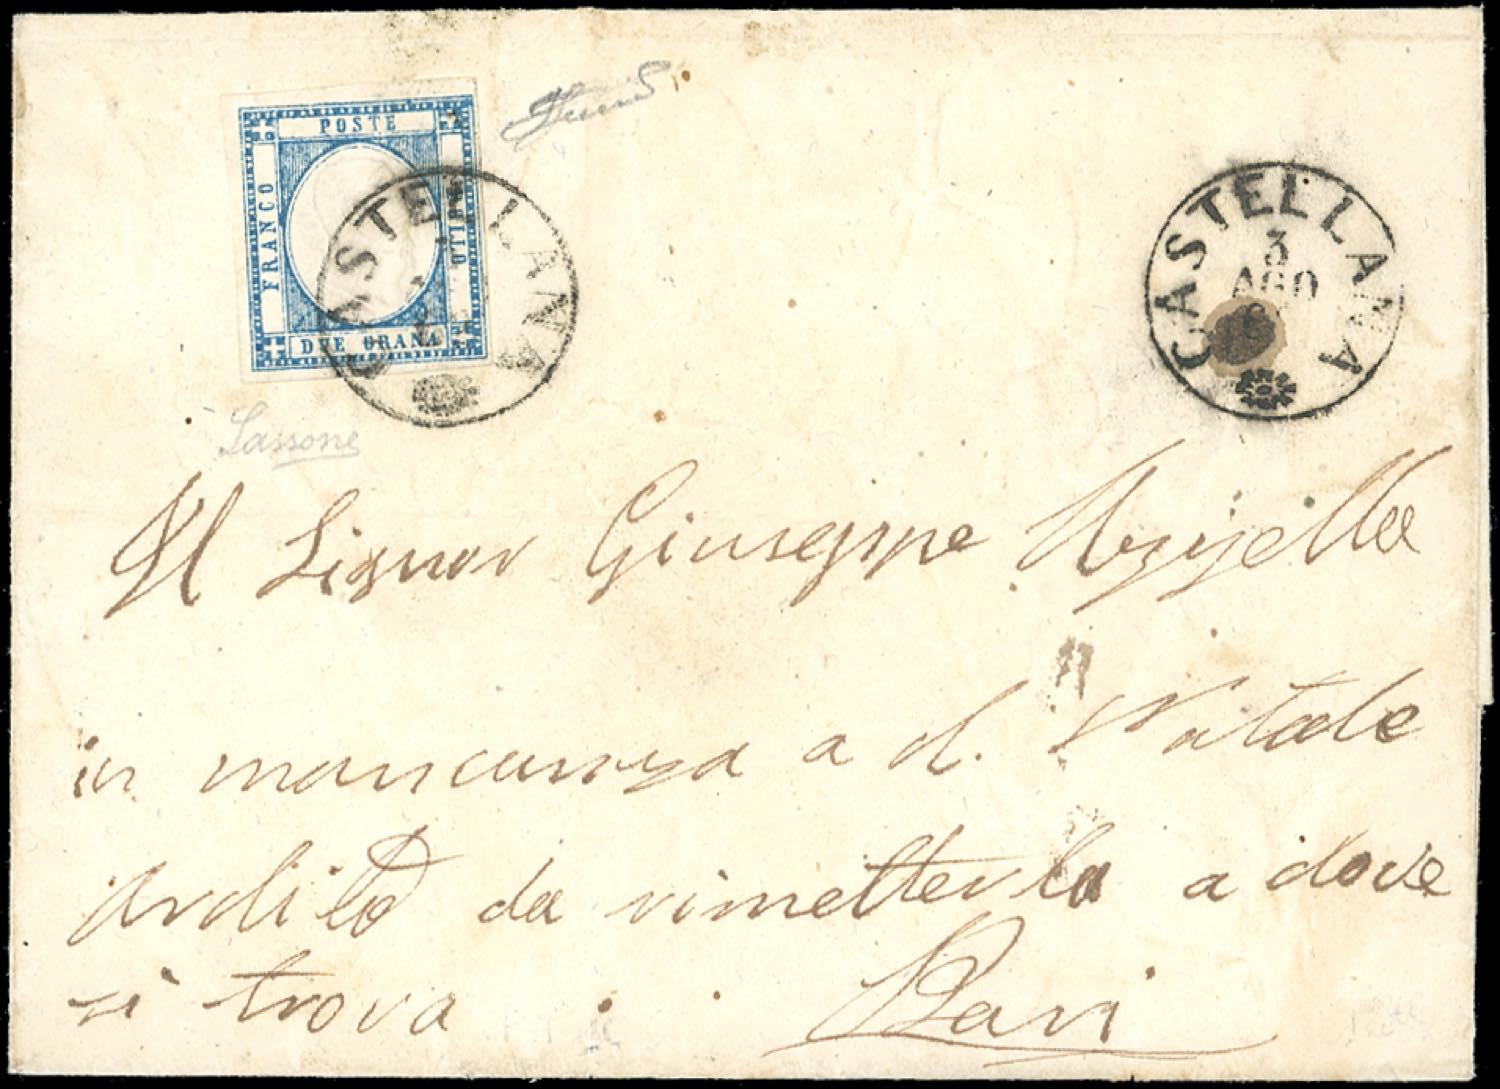 POSTE
FRANCO
BOLLO
DUE GRANA
CASTELLANA
CASTELLANA
3
AGO
Sassone
Al Signor Giuseppe
in mancanza a d. Natale
Ardito da rimetterla a dove
si trova . . Bari